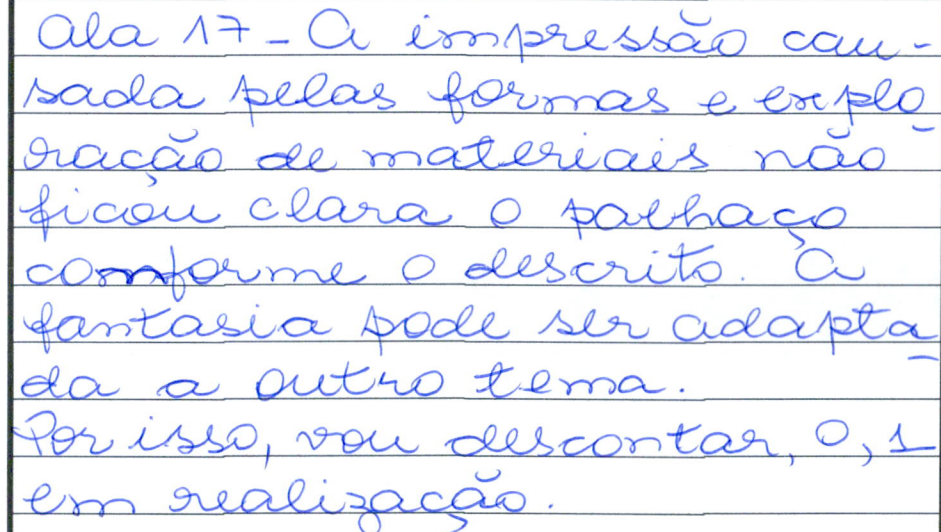 Ala 17 - A impressão cau-
sada pelas formas e explo
ração de materiais não
ficou clara o palhaço
conforme o descrito. A
fantasia pode ser adapta
da a outro tema.
Por isso, vou descontar, 0,1
em realização.